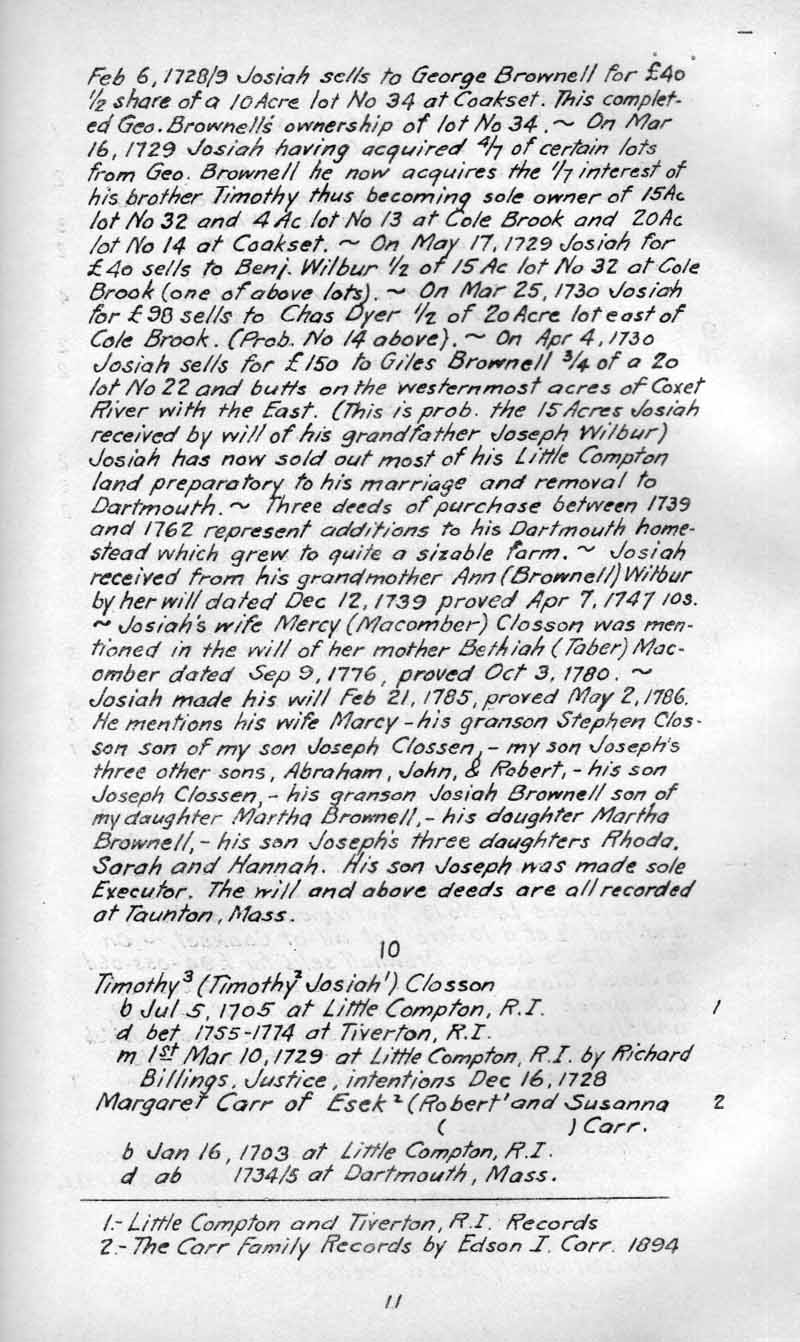 Feb 6, 1728/9 Josiah sells to George Brownell for £40
½ share of a 10 Acre lot No 34 at Coakset. This complet-
ed Geo. Brownell's ownership of lot No 34. ~ On Mar
16, 1729 Josiah having acquired 4/7 of certain lots
from Geo. Brownell he now acquires the 1/7 interest of
his brother Timothy thus becoming sole owner of 15Ac
lot No 32 and 4 Ac lot No 13 at Cole Brook and 20Ac
lot No 14 at Coakset. ~ On May 17, 1729 Josiah for
£40 sells to Benj. Wilbur ½ of 15 Ac lot No 32 at Cole
Brook (one of above lots). ~ On Mar 25, 1730 Josiah
for £98 sells to Chas Dyer ½ of 20 Acre lot east of
Cole Brook. (Prob. No 14 above). ~ On Apr 4, 1730
Josiah sells for £150 to Giles Brownell ¾ of a 20
lot No 22 and butts on the westernmost acres of Coxet
River with the East. (This is prob. the 15 Acres Josiah
received by will of his grandfather Joseph Wilbur)
Josiah has now sold out most of his Little Compton
land preparatory to his marriage and removal to
Dartmouth. ~ Three deeds of purchase between 1739
and 1762 represent additions to his Dartmouth home-
stead which grew to quite a sizable farm. ~ Josiah
received from his grandmother Ann (Brownell) Wilbur
by her will dated Dec 12, 1739 proved Apr 7, 1747 10s.
~ Josiah's wife Mercy (Macomber) Closson was men-
tioned in the will of her mother Bethiah (Taber) Mac-
omber dated Sep 9, 1776, proved Oct 3, 1780. ~
Josiah made his will Feb 21, 1785, proved May 2, 1786.
He mentions his wife Marcy - his granson Stephen Clos-
son son of my son Joseph Clossen, - my son Joseph's
three other sons, Abraham, John, & Robert, - his son
Joseph Clossen, - his granson Josiah Brownell son of
my daughter Martha Brownell, - his doughter Martha
Brownell, - his son Joseph's three daughters Rhoda,
Sarah and Hannah. His son Joseph was made sole
Executor. The will and above deeds are all recorded
at Taunton, Mass.
10
Timothy³ (Timothy² Josiah¹) Closson
b Jul 5, 1705 at Little Compton, R.I. 1
d bet 1755-1774 at Tiverton, R.I.
m 1st Mar 10, 1729 at Little Compton, R.I. by Richard
Billings, Justice, intentions Dec 16, 1728
Margaret Carr of Esek² (Robert¹ and Susanna 2
( ) Carr.
b Jan 16, 1703 at Little Compton, R.I.
d ab 1734/5 at Dartmouth, Mass.
1.- Little Compton and Tiverton, R.I. Records
2.- The Carr Family Records by Edson I. Carr. 1894
11